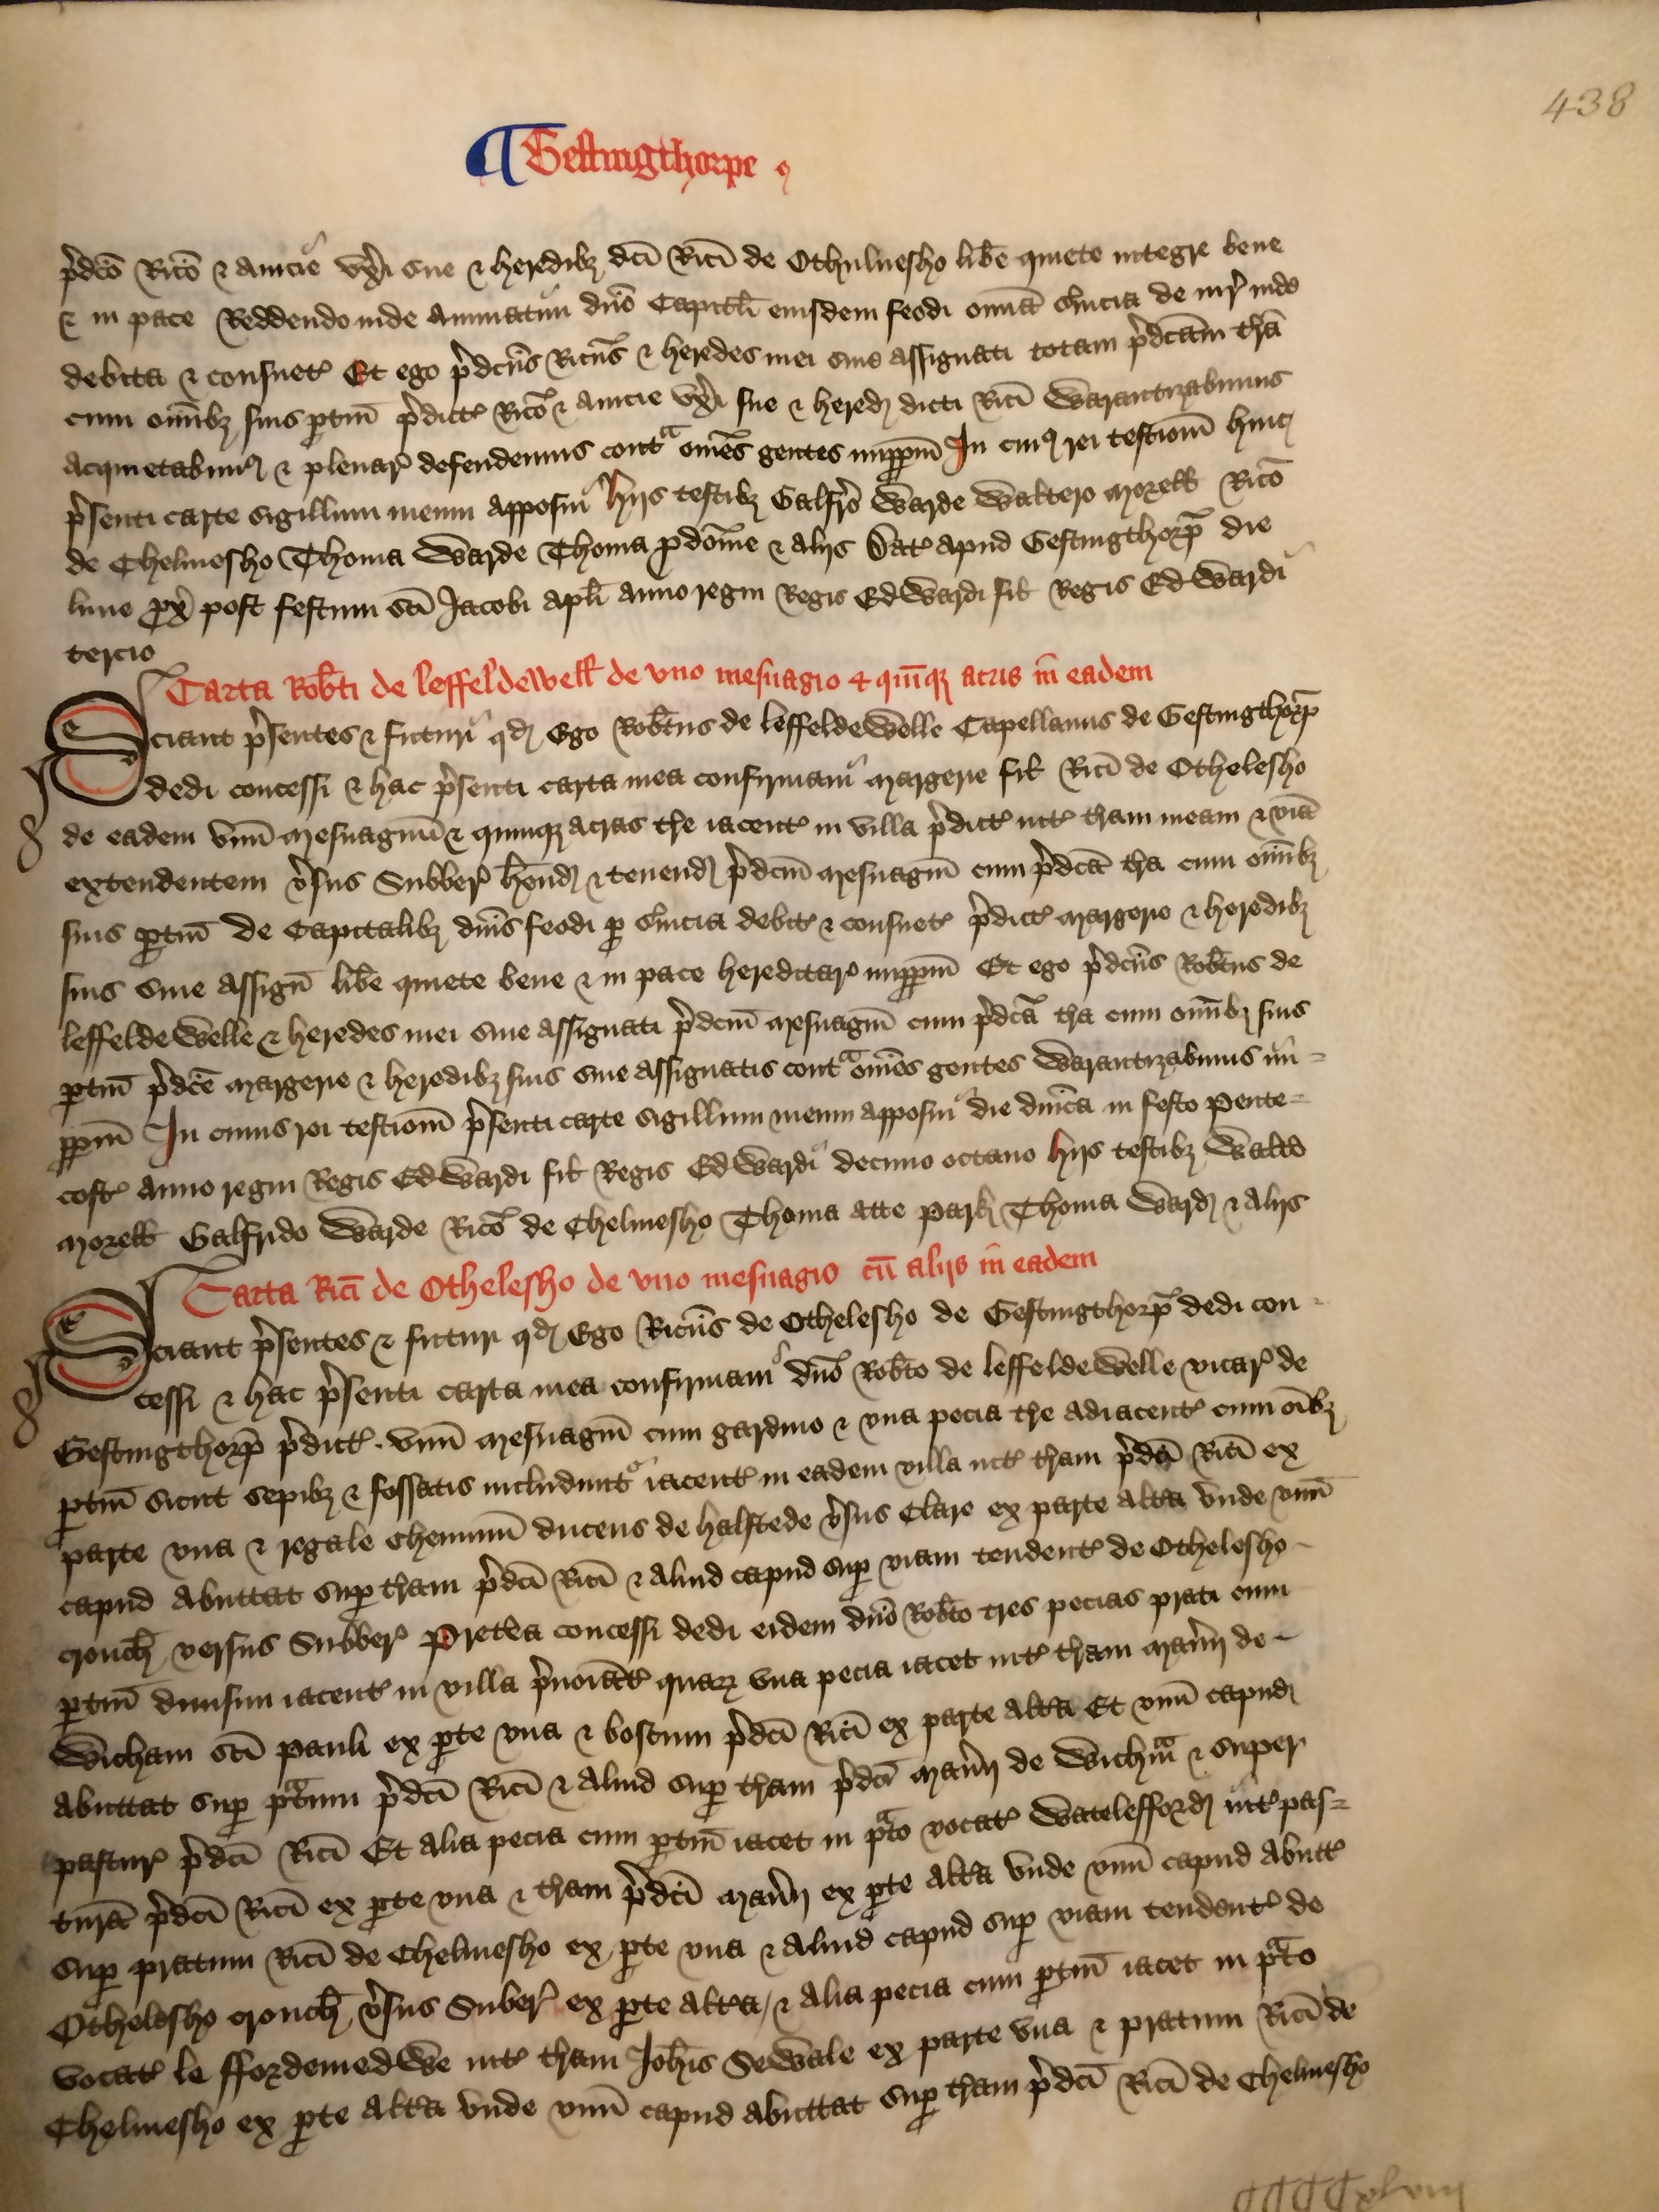 438
¶ Gestingthorpe
p̃dc̃o Ric̃o & amicie vx̃i sue & heredibȝ dc̃i Ric̃i de Othuluesho lib̃e quiete integre bene
& in pace Reddendo inde Annuatim dño Capitli eiusdem feodi om̃ia s̃uicia de iur̃ inde
debita & consuet̃ Et ego p̃dc̃us Ric̃us & heredes mei siue assignati totam p̃dc̃am t̃ra
cum om̃ibȝ suis ptiñ p̃dict̃ Ric̃o & amicie vx̃i sue & hered̃ dicti Ric̃i Warantizabimus
acquietabimꝰ & plenar̃ defendemus contᵃ om̃es gentes imppm̃ In cuiꝰ rei testiom̃ huic
p̃senti carte sigillum meum apposui hijs testibȝ Galfr̃o Warde Waltero Morell Ric̃o
de Chelmesho Thoma Warde Thoma pdom̃e & alijs Dat̃ apud Gestingthorp̃ die
lune px̃ post festum sc̃i Jacobi apl̃i anno regni Regis Edwardi fil̃ Regis Edwardi
tercio
Carta Rob̃ti de leffeldewell de vno mesuagio & quinqȝ acris in eadem
Sciant p̃sentes & futuri qd̃ Ego Rob̃tus de leffeldewelle Capellanus de Gestingthorp̃
dedi concessi & hac p̃senti carta mea confirmaui Margerie fil̃ Ric̃i de Othelesho
de eadem vnũ Mesuagiũ & quinqȝ acras t̃re iacent̃ in villa p̃dict̃ int̃ t̃ram meam & viã
extendentem ṽsus Subber̃ h̃end̃ & tenend̃ p̃dc̃m Mesuagiũ cum p̃dc̃a t̃ra cum om̃ibȝ
suis ptiñ de Capitalibȝ dñis feodi p s̃uicia debit̃ & consuet̃ p̃dict̃ Margerie & heredibȝ
suis siue assigñ lib̃e quiete bene & in pace hereditar̃ imppm̃ Et ego p̃dc̃us Rob̃tus de
leffeldewelle & heredes mei siue assignati p̃dc̃m Mesuagiũ cum p̃dc̃a t̃ra cum om̃ibȝ suis
ptiñ p̃dc̃e Margerie & heredibȝ suis siue assignatis contᵃ om̃es gentes Warantizabimus im=
ppm̃ In cuius rei testiom̃ p̃senti carte sigillum meum apposui die dñica in festo Pente=
cost̃ anno regni Regis Edwardi fil̃ Regis Edwardi decimo octauo hijs testibȝ Walt̃o
Morell Galfrido Warde Ric̃o de Chelmesho Thoma atte park̃ Thoma Ward̃ & alijs
Carta Ric̃i de Othelesho de vno mesuagio cũ alijs in eadem
Sciant p̃sentes & futuri qd̃ Ego Ric̃us de Othelesho de Gestingthorp̃ dedi con-
cessi & hac p̃senti carta mea confirmaui dño Rob̃to de leffeldewelle vicar̃ de
Gestingthorp̃ p̃dict̃ . vnũ Mesuagiũ cum gardino & vna pecia t̃re adiacent̃ cum oĩbȝ
ptiñ sicut sepibȝ & fossatis includunt̃ iacent̃ in eadem villa int̃ t̃ram p̃dc̃i Ric̃i ex
parte vna & regale cheminũ ducens de halstede ṽsus Clare ex parte alt̃a vnde vnũ
capud abuttat sup t̃ram p̃dc̃i Ric̃i & aliud capud sup viam tendent̃ de Othelesho
crouch̃ versus Subber̃ Pret̃ea concessi dedi eidem dño Rob̃to tres pecias prati cum
ptiñ diuisim iacent̃ in villa p̃noiãt̃ quaꝝ vna pecia iacet int̃ t̃ram Mañij de
Wicham sc̃i Pauli ex pte vna & boscum p̃dc̃i Ric̃i ex parte alt̃a Et vnũ capud
abuttat sup pᵃtum p̃dc̃i Ric̃i & aliud sup t̃ram p̃dc̃i Mañij de Wichm̃ & super
pastur̃ p̃dc̃i Ric̃i Et alia pecia cum ptiñ iacet in pᵃto vocat̃ Watelefford̃ int̃ pas=
turã p̃dc̃i Ric̃i ex pte vna & t̃ram p̃dc̃i Mañij ex pte alt̃a vnde vnũ capud abutt̃
sup pratum Ric̃i de Chelmesho ex pte vna & aliud capud sup viam tendent̃ de
Othelesho crouch̃ ṽsus Suber̃ ex pte alt̃a / & alia pecia cum ptiñ iacet in pᵃto
vocat̃ le ffordemedwe int̃ t̃ram Joh̃is Sewale ex parte vna & pratum Ric̃i de
Chelmesho ex pte alt̃a vnde vnũ capud abuttat sup t̃ram p̃dc̃i Ric̃i de Chelmesho
CCCCxlviij